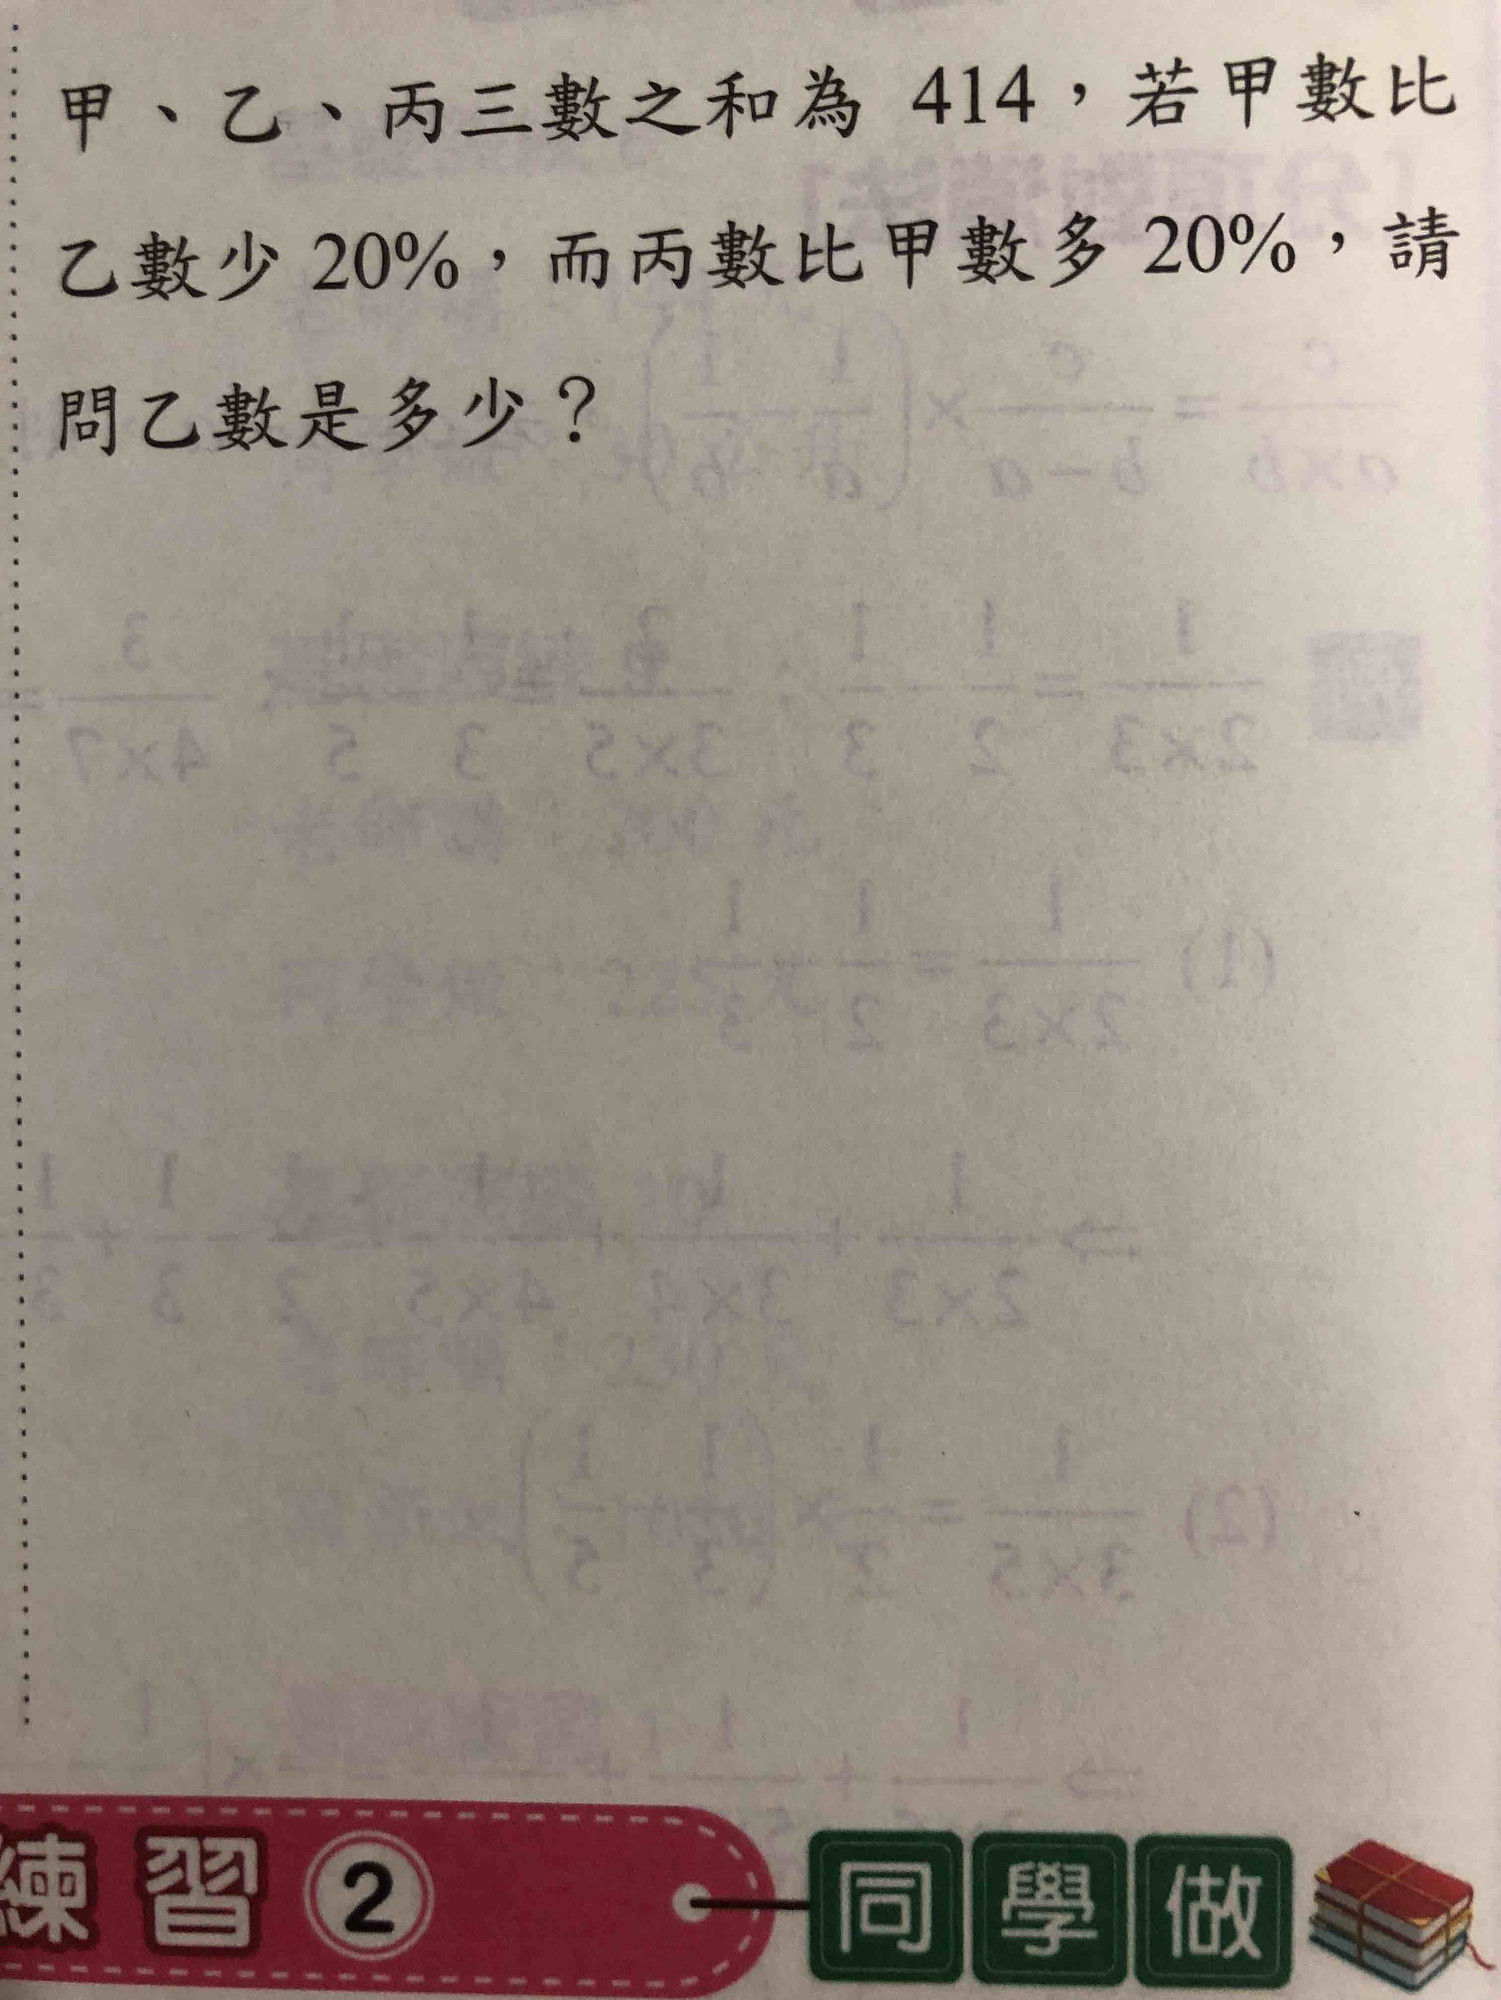 甲、乙、丙三數之和為 414，若甲數比
乙數少 20%，而丙數比甲數多 20%，請
問乙數是多少？
練習 2 同學做